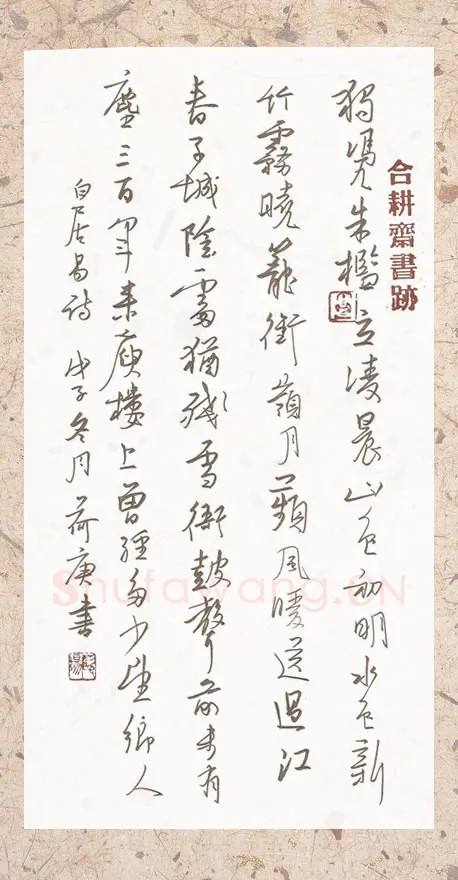 合耕齋書跡
獨憑朱檻立凌晨山色初明水色新
竹霧曉籠銜嶺月蘋風暖送過江
春子城陰處猶殘雪衙鼓聲前未有
塵三百年来庾樓上曾經多少望鄉人
白居易诗 戊子冬月荷庚書
Shufawang.CN